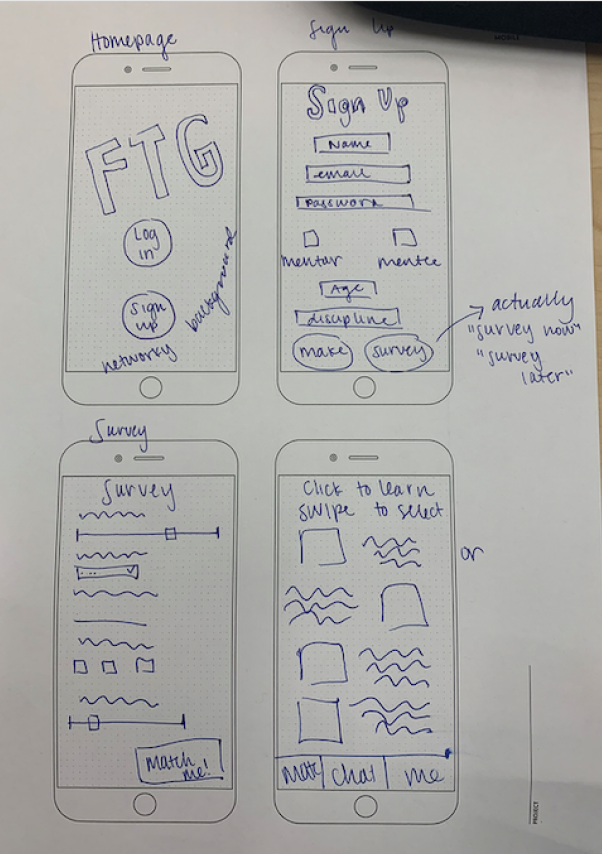 Homepage
FTG
Log
in
Sign
up
networky
background
Sign Up
MOBILE
Sign Up
Name
email
password
mentor
mentee
Age
discipline
make
survey
actually
"survey now"
"survey
later"
Survey
Survey
Match
me!
Click to learn
swipe to select
or
Matc
chat
me
PROJECT